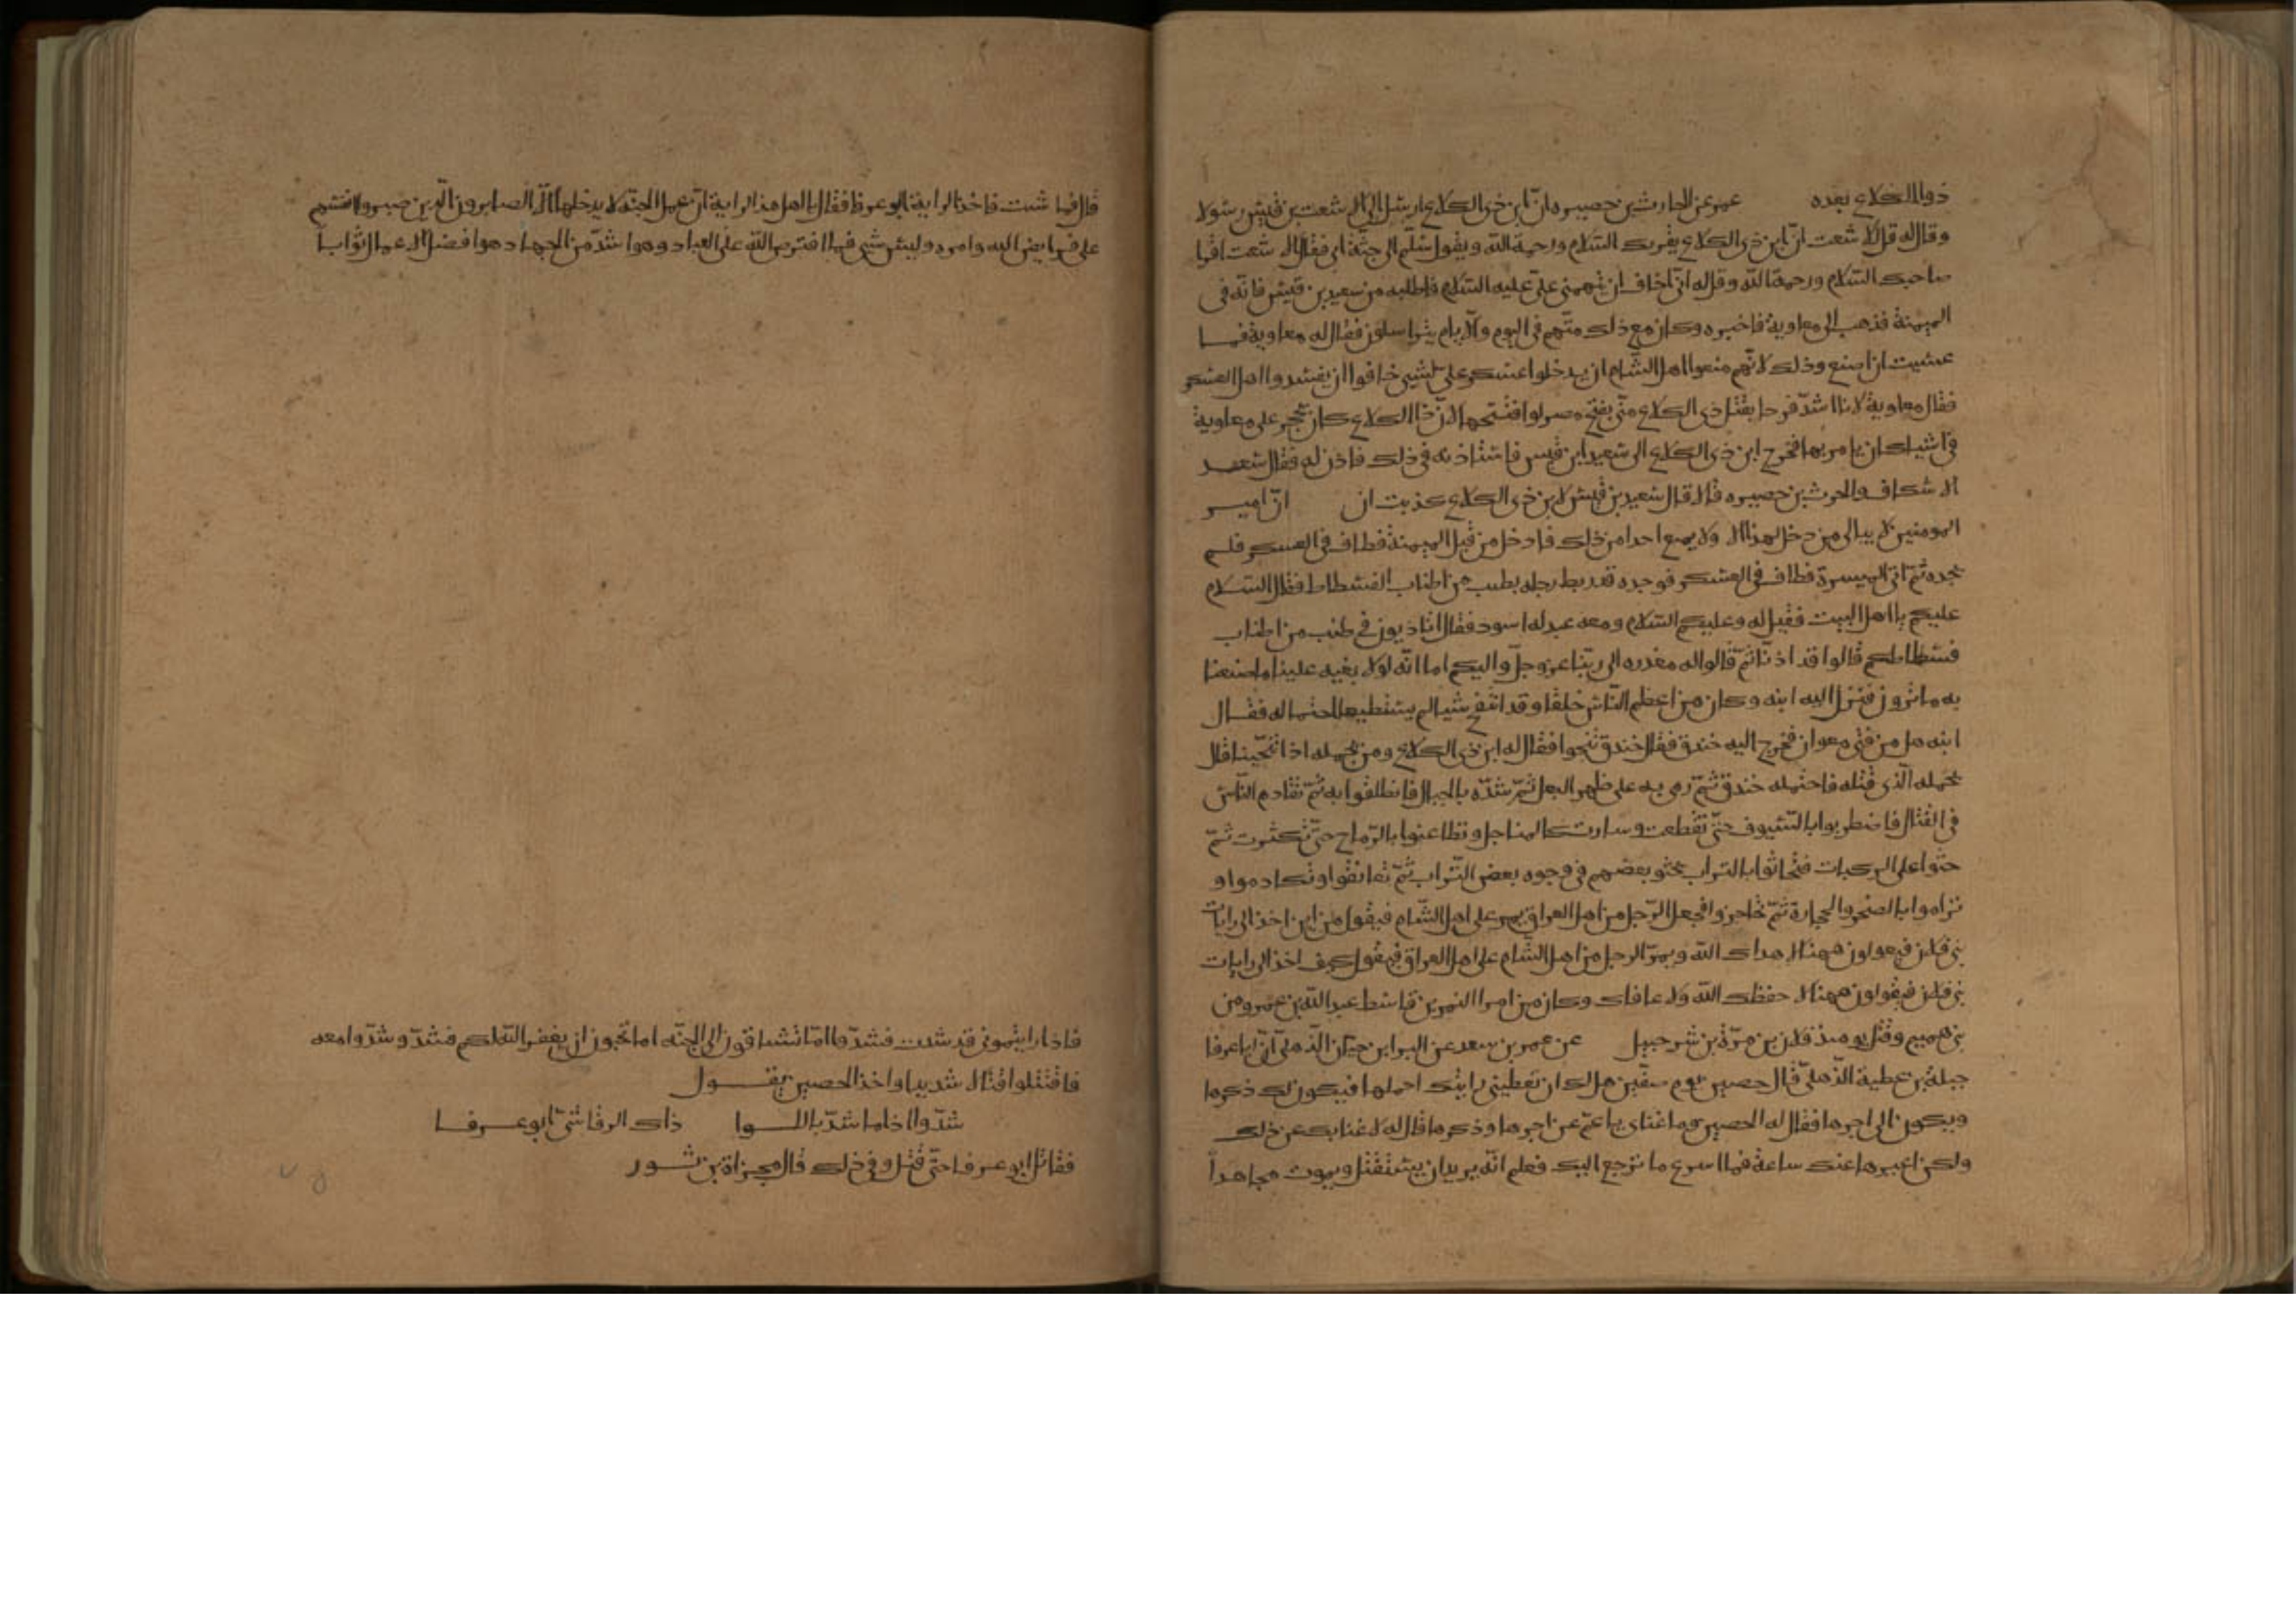 ذوا الكلاع بعده عمر عن الحارث بن حصيره ان ابن ذي الكلاع ارسل الي الاشعت بن قيس رسولا
وقال له قل لاشعت ان ابن ذي الكلاع يقريك السلام ورحمة الله ويقول سلم الي جثة ابي فقال الاشعت اقرا
صاحبك السلام ورحمة الله وقل له اني اخاف ان يتهمني علي عليه السلام فاطلبه من سعيد بن قيس فانه في
الميمنة فذهب الي معاوية فاخبره وكان مع ذلك منهم في اليوم والايام يتراسلون فقال له معاوية فما
عسيت ان اصنع وذلك لانهم منعوا اهل الشام ان يدخلوا عسكر علي لشيي خافوا ان يفسدوا اهل العسكر
فقال معاوية لانا اشد فرحا بقتل ذي الكلاع مني بفتح مصر لوافتتحها لان ذا الكلاع كان يحجر علي معاوية
في اشيا كان يامر بها فخرج ابن ذي الكلاع الي سعيد ابن قيس فاستاذنه في ذلك فاذن له فقال سعد
الاسكاف والحرث بن حصيره قال قال سعيد بن قيس لابن ذي الكلاع كذبت ان ان امير
المومنين لا يبالي من دخل لهذا الا ولا يمنع احدا من ذلك فادخل من قبل الميمنة فطاف في العسكر فلم
يجده ثم اتي الميسرة فطاف في العسكر فوجده قد ربط رجله بطنب من اطناب الفسطاط فقال السلام
عليكم يا اهل البيت فقيل له وعليكم السلام ومعه عبد له اسود فقال اتاذنون في طنب من اطناب
فسطاطكم قالوا قد اذنا ثم قالوا له معذره الي ربنا عز وجل واليكم اما انه لولا بغيه علينا ما صنعنا
به ماترون فنزل اليه ابنه وكان من اعظم الناس خلقا وقد انتفخ شيا لم يستطيعا احتماله فقال
ابنه هل من فتي معوان فخرج اليه خندق فقال خندق تنحوا فقال له ابن ذي الكلاع ومن يحمله اذا تنحينا قال
يحمله الذي قتله فاحتمله خندق ثم رمي به علي ظهر البغل ثم شده بالحبال فانطلقوا به ثم تقادم الناس
في القتال فاضطربوا بالسيوف حتي تقطعت وسارت كالمناجل وتطاعنوا بالرماح حتي تكسرت ثم
حثوا علي الركبات فتحاثوا بالتراب يحثو بعضهم في وجوه بعض التراب ثم تعانقوا وتكادموا و
تراموا بالصخر والحجارة ثم تحاجزوا فجعل الرجل من اهل العراق يمر علي اهل الشام فيقول من اين اخذ الي رايات
بني فلان فيقولون ههنا لا هداك الله ويمر الرجل من اهل الشام علي اهل العراق فيقول كيف اخذ الي رايات
بني فلان فيقولون ههنا لا حفظك الله ولا عافاك وكان من امرا النمر بن قاسط عبد الله بن عمرو من
بني هميم وقتل يومئذ فلان بن مرة بن شرحبيل عن عمر بن سعد عن البرا بن حيان الذهلي ان ابا عرفا
جبلة بن عطية الذهلي قال لحصين يوم صفين هل لك ان تعطيني رايتك احملها فيكون لك ذكرها
ويكون الي اجرها فقال له الحصين وما غناي يا عم عن اجرها وذكرها قال له لا غنا بك عن ذلك
ولكن اعيرها عنك ساعة فما اسرع ما ترجع اليك فعلم انه يريد ان يستقتل ويموت مجاهدا
قال فما شيت فاخذ الراية ابو عرفا فقال يا اهل هذا الراية ان عمل الجنة لا يدخلها الا الصابرون الذين صبروا انفسهم
علي فرايض الله وامره وليس شي فيما افترض الله علي العباد وهوا شد من الجهاد هوا فضل الاعمال ثوابا
فاذا رايتموني قد شددت فشدوا اما تشتاقون الي الجنه اما تحبون ان يغفر الله لكم فشد وشدوا معه
فاقتتلوا قتالا شديدا واخذ الحصين يقول
شدوا اذا ما شد باللوا ذاك الرقاشي ابو عرفا
فقاتل ابو عرفا حتي قتل وفي ذلك قال مجزاة بن ثور